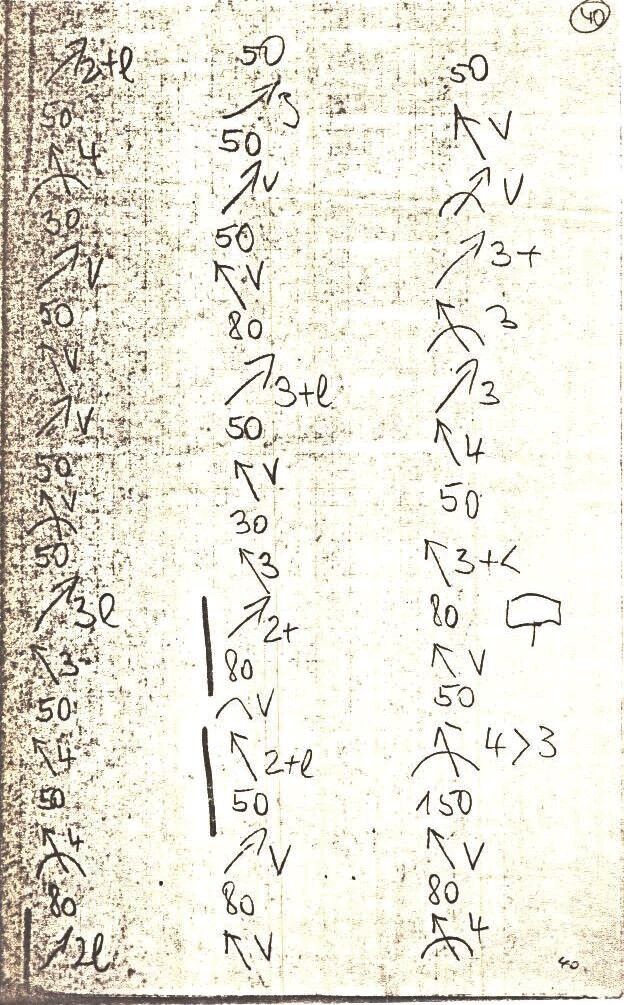 40
↗ 2+l
50
↖ 4
30
↗ V
50
↖ V
↗ V
50
↖ V
50
↗ 3l
↖ 3-
50
↖ 4
50
↖ 4
80
↗ 2l
50
↗ 3
50
↗ V
50
↖ V
80
↗ 3+l
50
↖ V
30
↖ 3
↗ 2+
80
⌒ V
↖ 2+l
50
↗ V
80
↖ V
50
↖ V
↗ V
↗ 3+
↖ 3
↗ 3
↖ 4
50
↖ 3+<
80
↖ V
50
↖ 4>3
150
↖ V
80
↖ 4
40